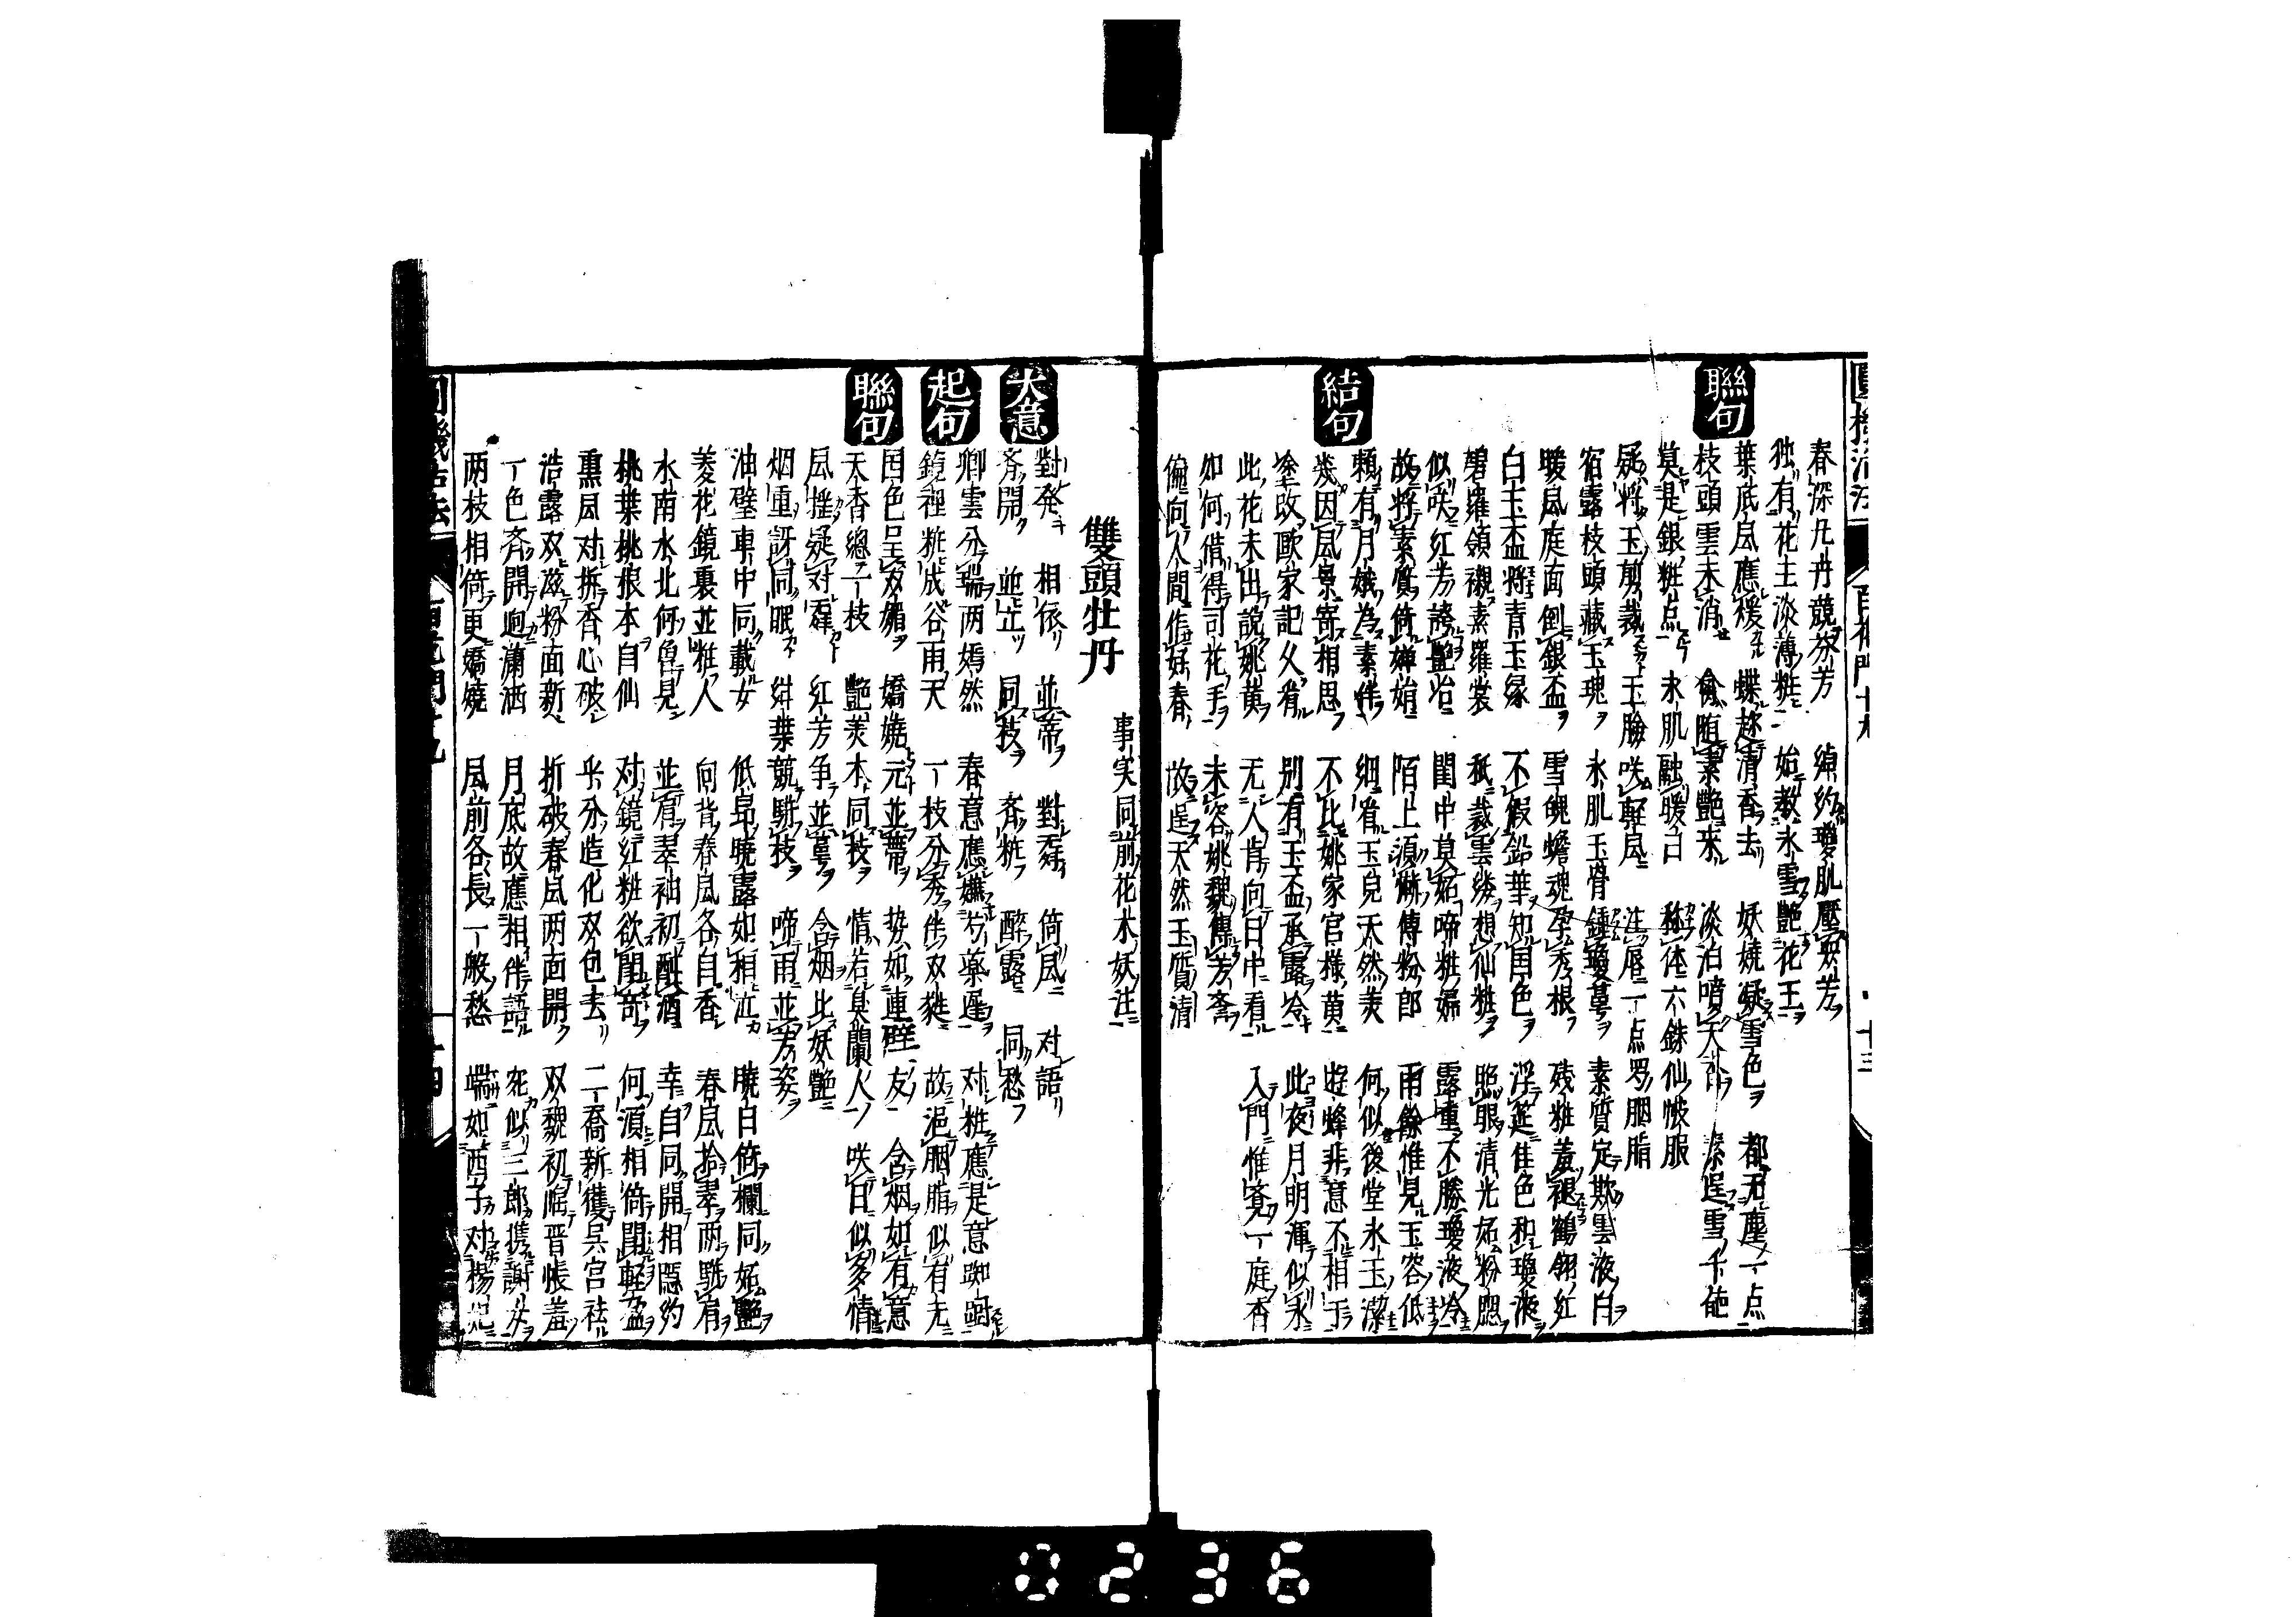 春深九丹競芬芳 綽約瓊肌壓衆芳
独有花王淡薄粧 始教氷雪艶花王
聯句
葉底風應煖 蝶趂清香去 妖嬈凝雪色 都无塵一点
枝頭雲未消 禽随素艶来 淡泊嗜天 素逞雪千葩
莫是銀粧点 氷肌融暖日 称体六銖仙帔服
疑将玉剪裁 玉臉咲軽風 注唇一点罗胭脂
宿露枝頭藏玉塊 氷肌玉骨鍾瓊萼 素質定欺雲液白
暖風庭面倒銀盃 雪魄蟾魂孕秀根 残粧羞褪鶴翎紅
白玉盃將青玉縁 不假鉛華知国色 浮筵佳色和瓊液
碧羅領襯素羅裳 秖裁雲縷想仙粧 照眼清光妬粉麗
似咲紅芳誇艶冶 閨中莫妬啼粧婦 露重不勝瓊液冷
故將素質倚嬋娟 陌上須慚傅粉郎 雨餘惟見玉容低
結句
頼有月娥為素伴 細看玉皃天然美 何似後堂氷玉潔
幾因風景寄相思 不比姚家官様黄 遊蜂非意不相于
塗改歐家記久看 別有玉盃承露冷 此夜月明渾似氷
此花未出説姚黄 无人肯向日中看 入門惟覚一庭香
如何借得司花手 未容姚魏傳芳斎
偏向人間作妖春 故逞天然玉質清
雙頭牡丹
事実同前花木妖注
大意
對発 相依 並蒂 對舞 倚風 对語
斉開 並立 同枝 斉粧 醉露 同愁
起句
卿雲分瑞両嫣然 春意應嫌芍薬遅 对粧應是意踟蹰
鏡裡粧成谷雨天 一枝分秀伴双蕤 故浥胭脂似有无
聯句
国色呈双媚 嬌嬈元並蒂 势如連璧友 含烟如有意
天香總一枝 艶美本同枝 情若臭蘭人 咲日似多情
風揺疑对舞 紅芳争並萼 含烟比妖艶
烟重訝同眠 緑葉競駢枝 啼雨並芳姿
油璧車中同載女 低昂暁露如相泣 暁日倚欄同妬艶
菱花鏡裏並粧人 向背春風各自香 春風拾翠両駢肩
水南水北何曽見 並有翠袖初酣酒 幸自同開相隠約
桃葉桃根本自仙 对鏡紅粧欲閗奇 何須相倚閗軽盈
熏風对拆香心破 乎分造化双包去 二喬新獲呉宮祛
浩露双滋粉面新 折破春風両面開 双魏初臨晋帳羞
一色斉開迥瀟洒 月底故應相伴語 宛似三郎携謝女
両枝相倚更嬌嬈 風前各長一般愁 端如西子对楊妃
0236